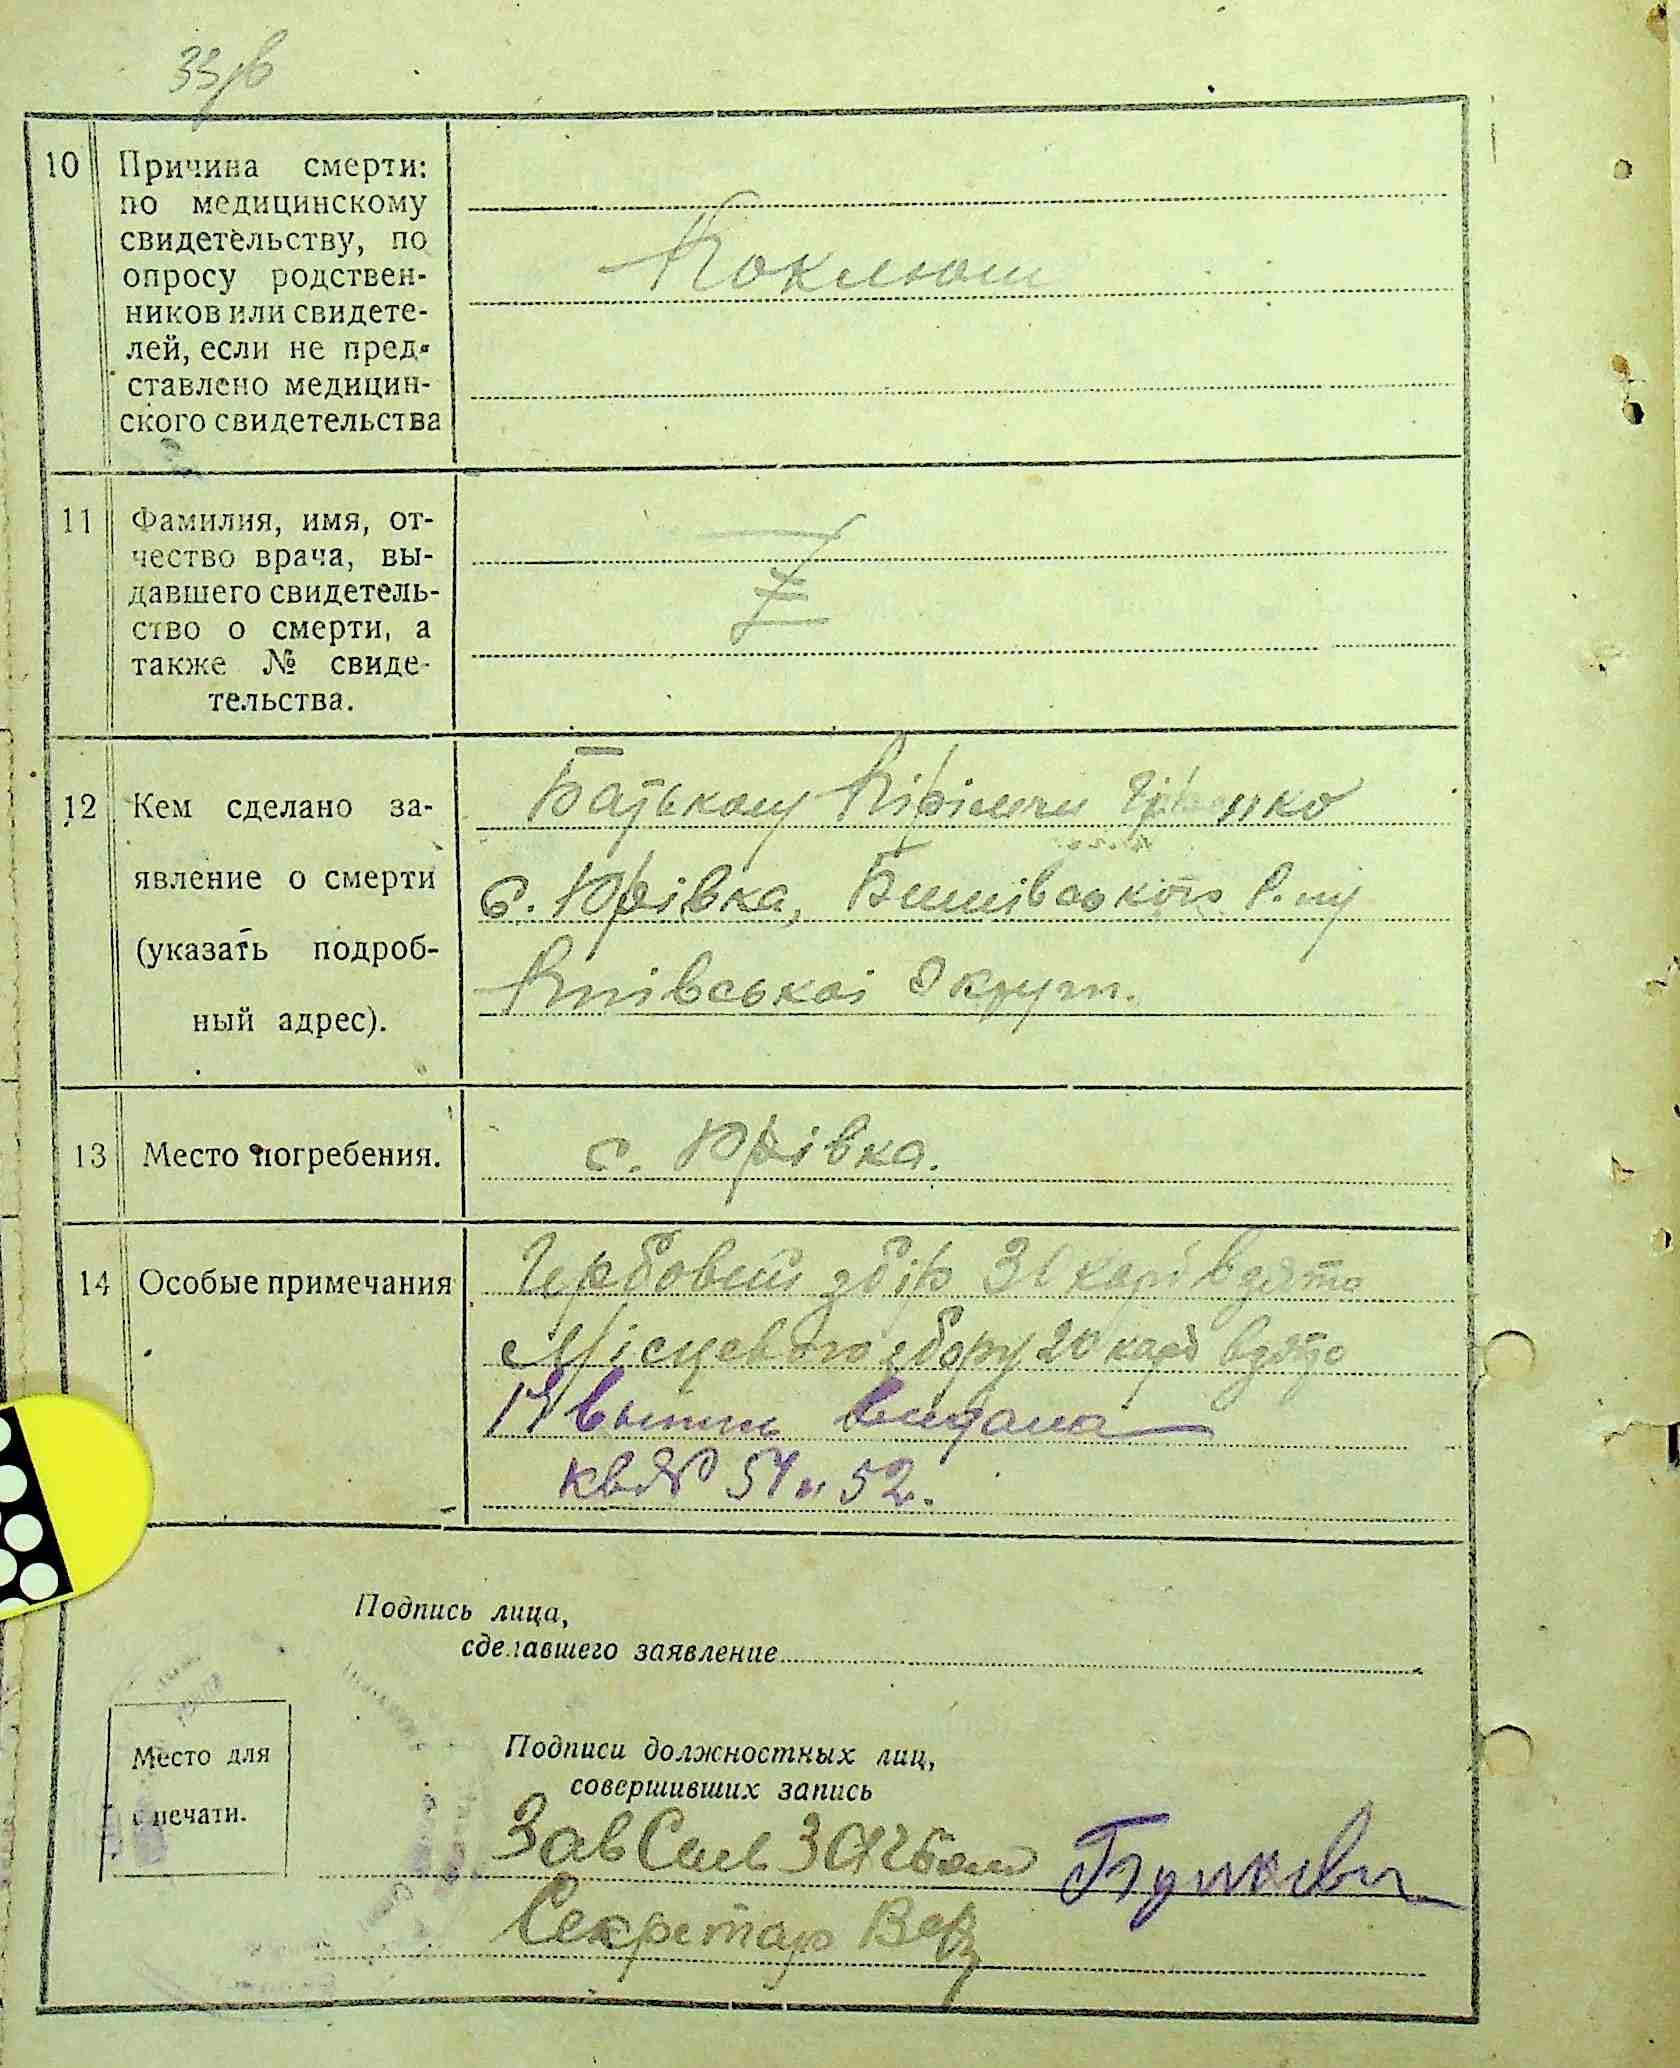 10 Причина смерти:
по медицинскому
свидетельству, по
опросу родствен-
ников или свидете-
лей, если не пред-
ставлено медицин-
ского свидетельства
Коклюш
11 Фамилия, имя, от-
чество врача, вы-
давшего свидетель-
ство о смерти, а
также № свиде-
тельства.
12 Кем сделано за-
явление о смерти
(указать подроб-
ный адрес).
Батьком
с. Юрівка,
Київської Округи.
13 Место погребения.
с. Юрівка.
14 Особые примечания
Гербовий збір 30 коп взято
Місцевого збору 20 коп взято
видана
кв № 51 и 52.
Подпись лица,
сделавшего заявление
Место для
печати.
Подписи должностных лиц,
совершивших запись
Зав
Секретар